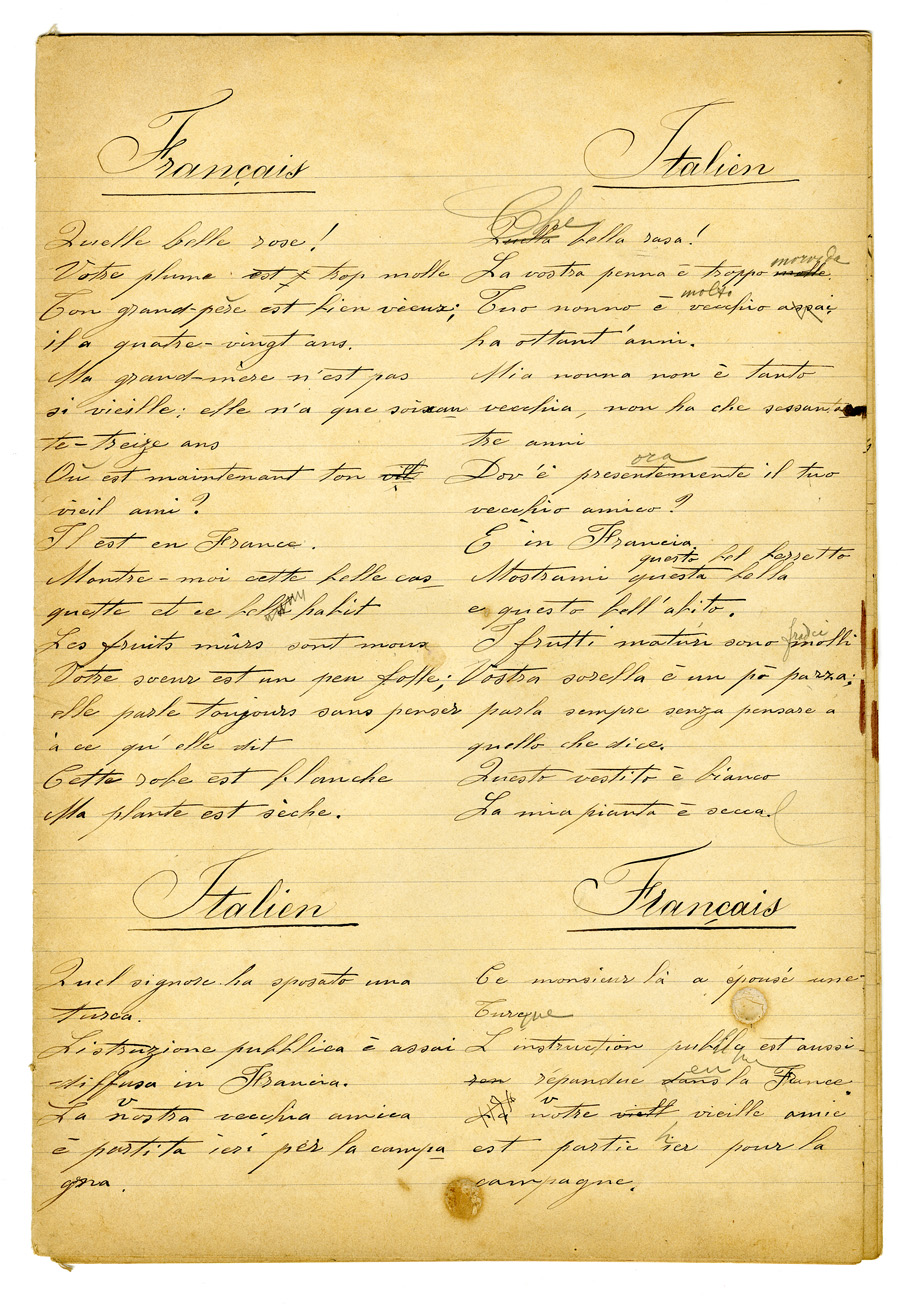 Français
Quelle belle rose!
Votre plume est trop molle
Ton grand-père est bien vieux;
il a quatre-vingt ans.
Ma grand-mère n'est pas
si vieille; elle n'a que soixan
te-treize ans
Où est maintenant ton
vieil ami?
Il est en France.
Montre-moi cette belle cas
quette et ce habit
Les fruits mûrs sont mous
Votre soeur est un peu folle;
elle parle toujours sans penser
à ce qu'elle dit
Cette robe est blanche
Ma plante est sèche.
Italien
Che
Quella bella rosa!
morvida
La vostra penna è troppo molle
molto
Tuo nonno è vecchio assai;
ha ottant'anni.
Mia nonna non è tanto
vecchia, non ha che sessanta
tre anni
ora
Dov'è presentemente il tuo
vecchio amico?
È in Francia
questo bel berretto
Mostrami questa bella
e questo bell'abito.
fradici
I frutti maturi sono molli
Vostra sorella è un pò pazza;
parla sempre senza pensare a
quello che dice.
Questo vestito è bianco
La mia pianta è secca.
Italien
Quel signore ha sposato una
turca.
L'istruzione pubblica è assai
diffusa in Francia.
v
La nostra vecchia amica
è partita ieri per la campa
gna.
Français
Ce monsieur là a épousé une
Turque
L'instruction publique est aussi
en
répandue dans la France
v
La notre vieille amie
est partie hier pour la
campagne.